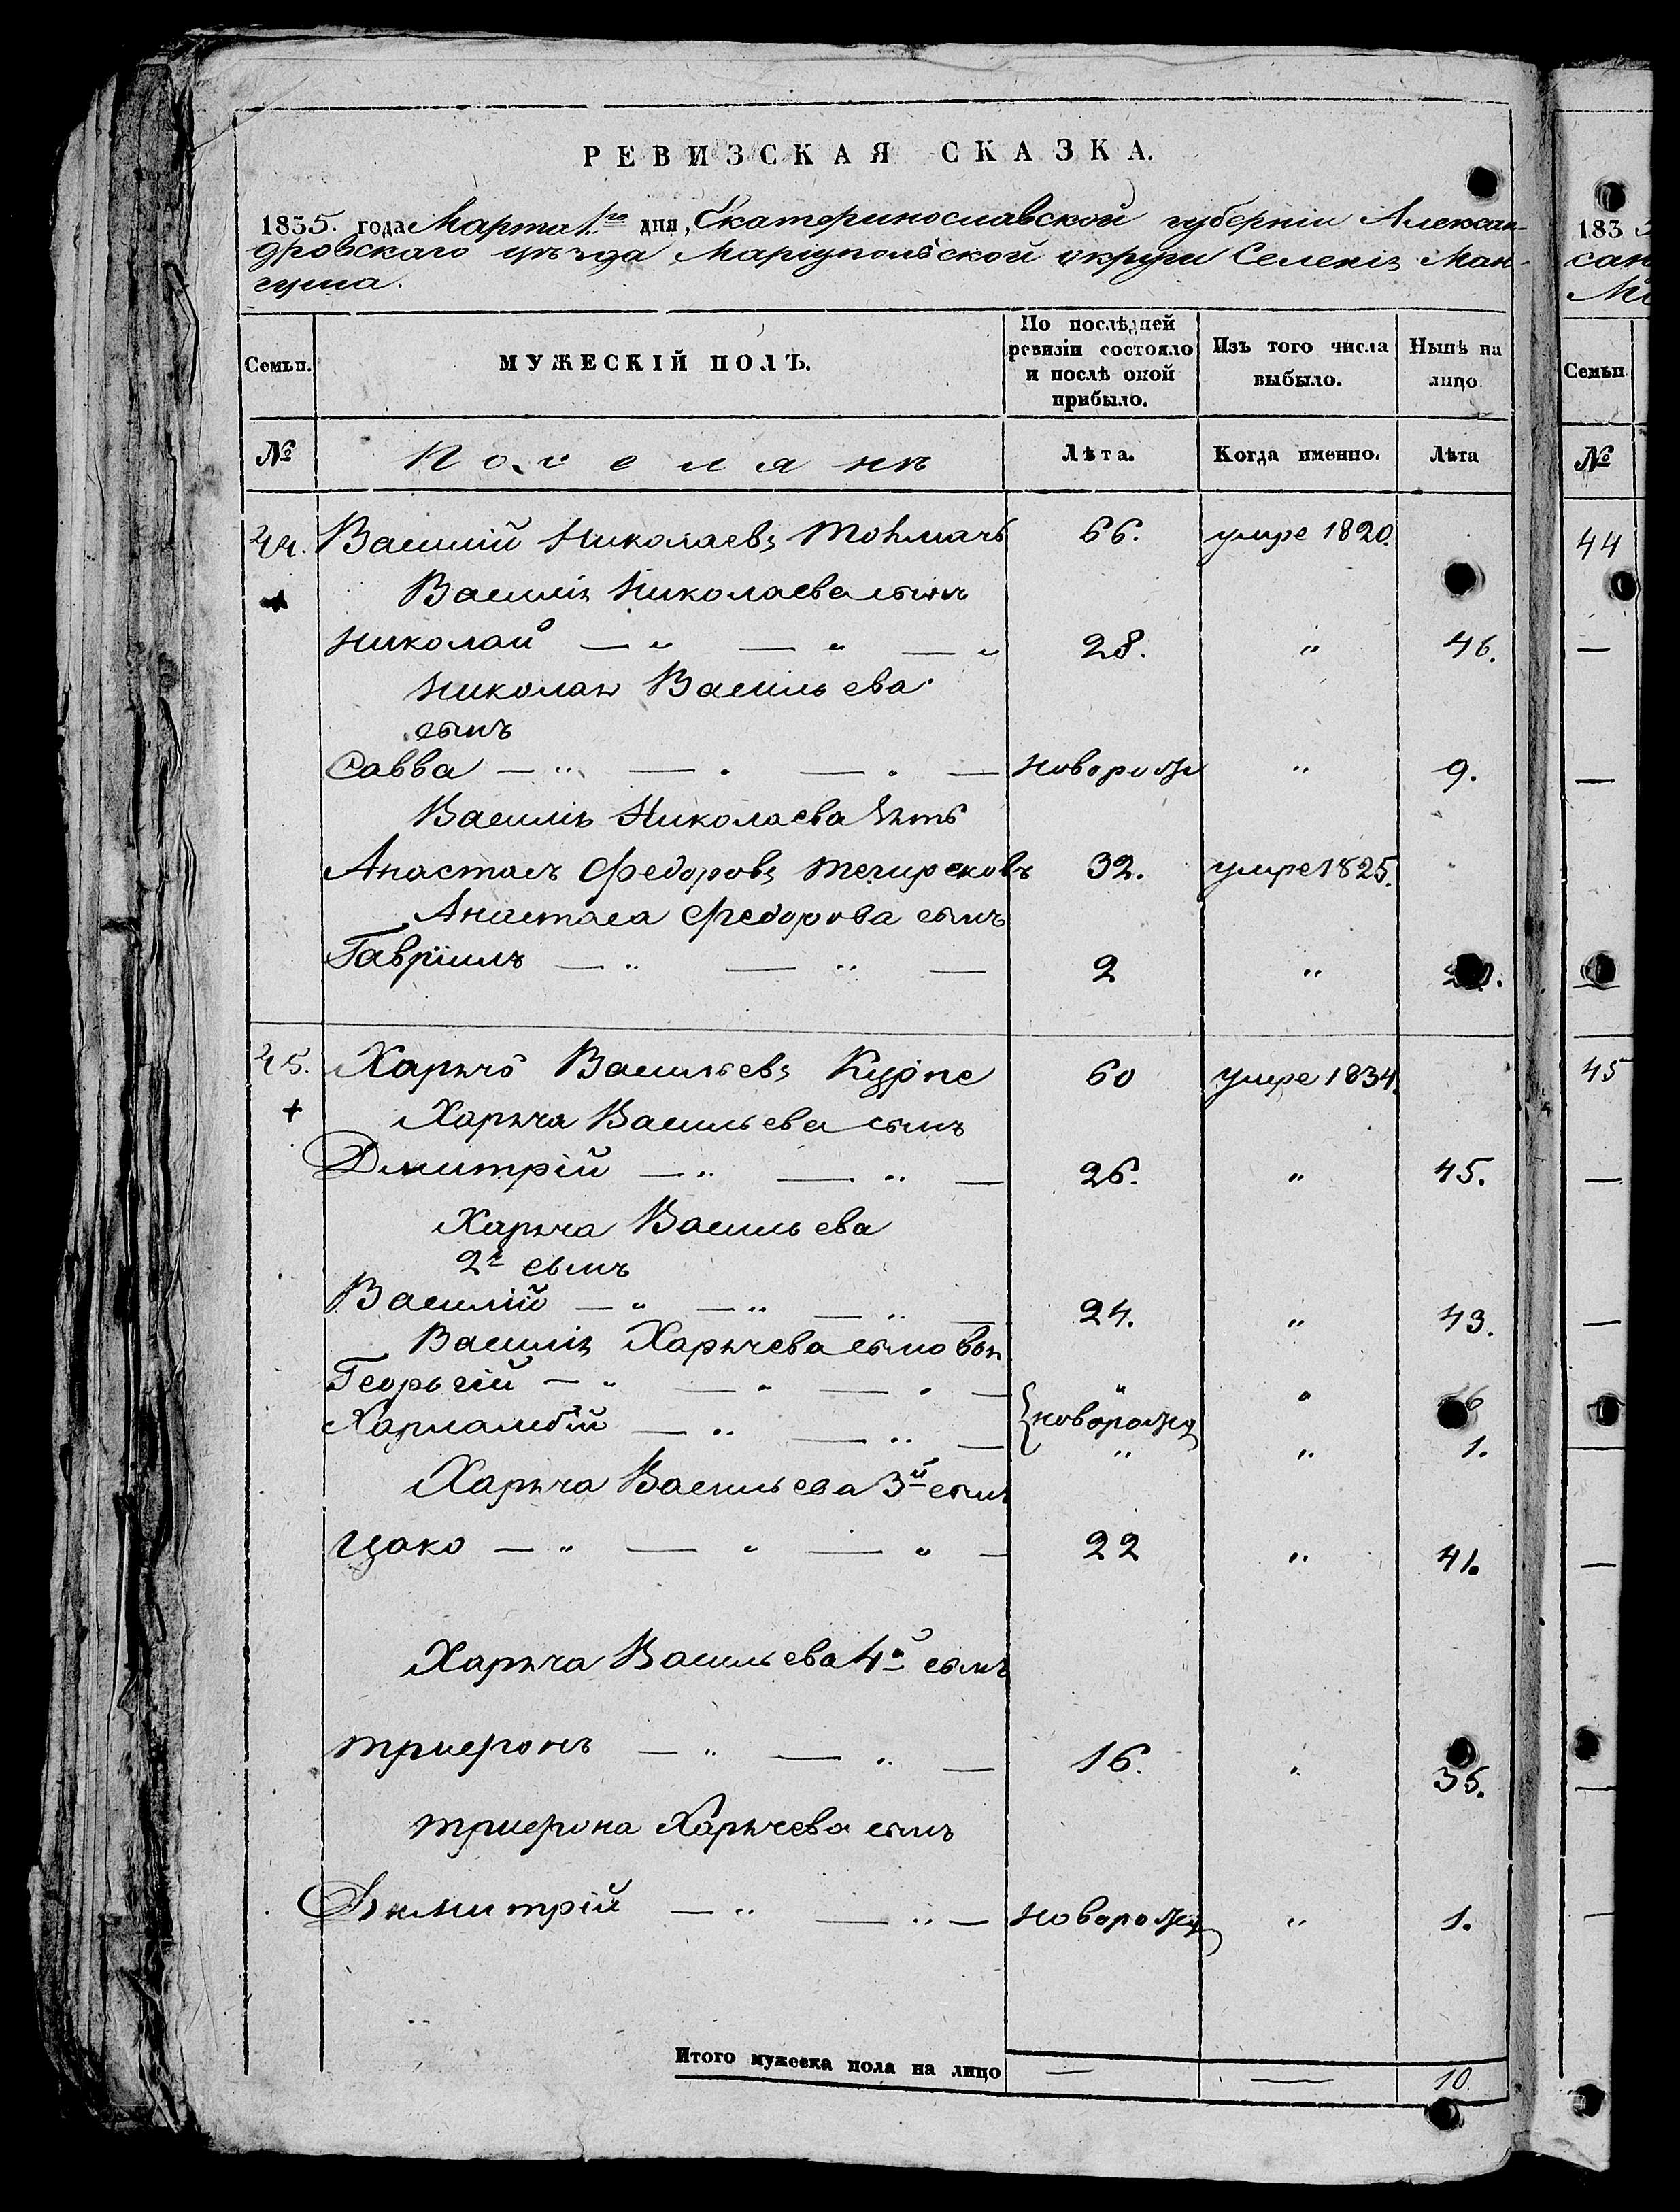 РЕВИЗСКАЯ СКАЗКА.
1835. года Марта 1го дня, Екатеринославской губерніи Алексан-
дровскаго уѣзда Маріупольской округи Селенія Ман-
гуша.
Семьи. МУЖЕСКІЙ ПОЛЪ. По послѣдней ревизіи состояло и послѣ оной прибыло. Изъ того числа выбыло. Нынѣ на лицо.
№ Поселянъ Лѣта. Когда именно. Лѣта
44. Василій Николаевъ 66. умре 1820.
Василія Николаева сынъ
Николай — " — " — " 28. " 46.
Николая Васильева
сынъ
Савва — " — " — " — новорожд " 9.
Василія Николаева зять
Анастасъ Федоровъ 32. умре 1825.
Анастаса Федорова сынъ
Гавріилъ — " — " — 2 "
45. Харычъ Васильевъ Курпе 60 умре 1834.
+ Харыча Васильева сынъ
Дмитрій — " — " — 26. " 45.
Харыча Васильева
2й сынъ
Василій — " — " — " — 24. " 43.
Василія Харычева сыновья
Георьгій — " — " — " — " "
Харламбій — " — " — { новорожд " " 1.
Харыча Васильева 3й сынъ
Цако — " — " — " — 22 " 41.
Харыча Васильева 4й сынъ
Трифонъ — " — " — 16. " 35.
Трифона Харычева сынъ
Димитрій — " — " — новорожд " 1.
Итого мужеска пола на лицо — — 10.
183
сан
Семьи
№
44
—
—
—
45
—
—
—
—
—